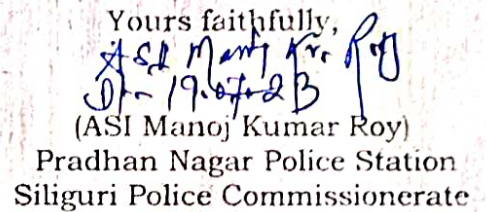 Yours faithfully,
ASI Manoj Kr. Roy
Dt- 19.07.23
(ASI Manoj Kumar Roy)
Pradhan Nagar Police Station
Siliguri Police Commissionerate